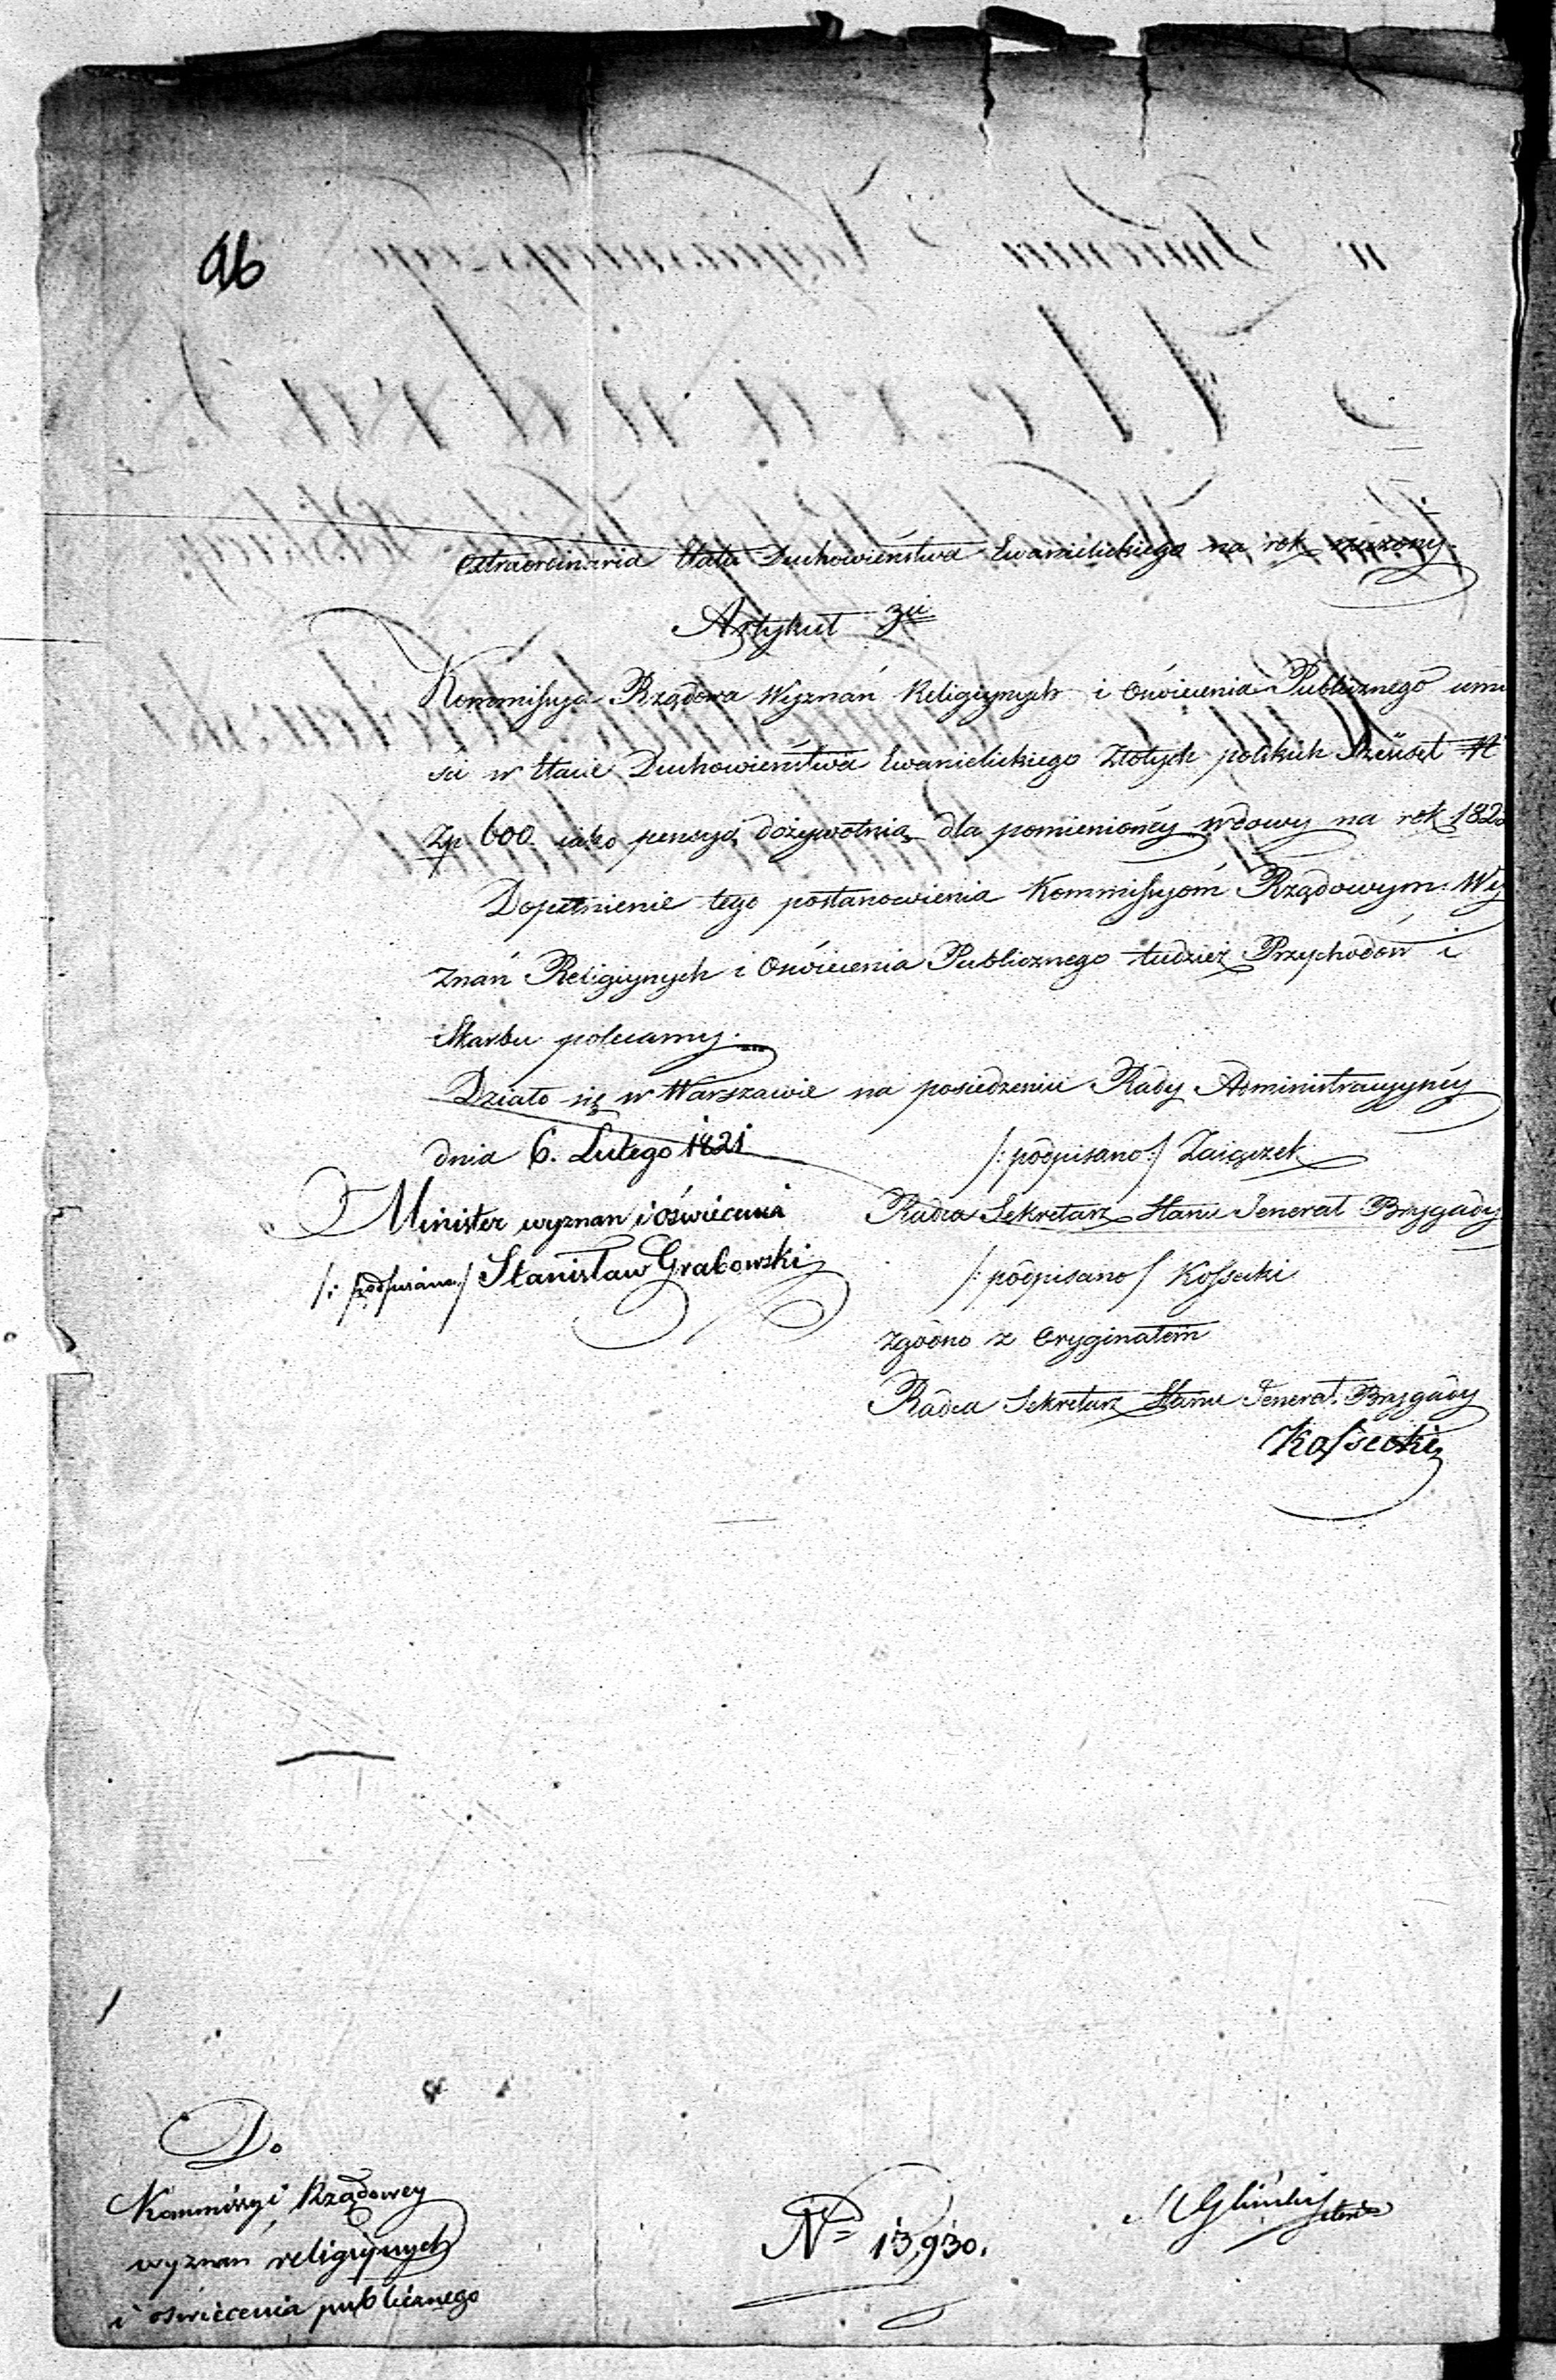 96
extraordinaria Etatu Duchowieństwa Ewanielickiego na rok rzeczony.
Artykuł 3ci
Kommissya Rządowa Wyznań Religiynych i Oświecenia Publicznego umie
ści w Etacie Duchowieństwa Ewanielickiego Złotych polskich Sześćset
Zp 600. iako pensyą dożywotnią dla pomienionéy wdowy na rok 1820
Dopełnienie tego postanowienia Kommissyom Rządowym: Wy
znań Religiynych i Oświecenia Publicznego tudzież Przychodów i
Skarbu polecamy.
Działo się w Warszawie na posiedzeniu Rady Administracyynéy
dnia 6. Lutego 1821
/: podpisano :/ Zaiączek
Minister wyznan i oświecenia
/: podpisano :/ Stanisław Grabowski
Radca Sekretarz Stanu Jenerał Brygady
/: podpisano / Kossecki
Zgodno z Oryginałem
Radca Sekretarz Stanu Jenerał Brygady
Kossecki
Do
Kommissyi Rządowey
wyznan religiynych
i oswiecenia publicznego
No 13,930.